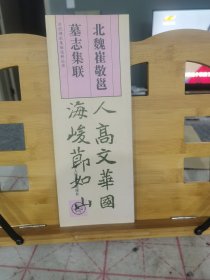 北魏崔敬邕
墓志集联
人高文华国
海峻节如山